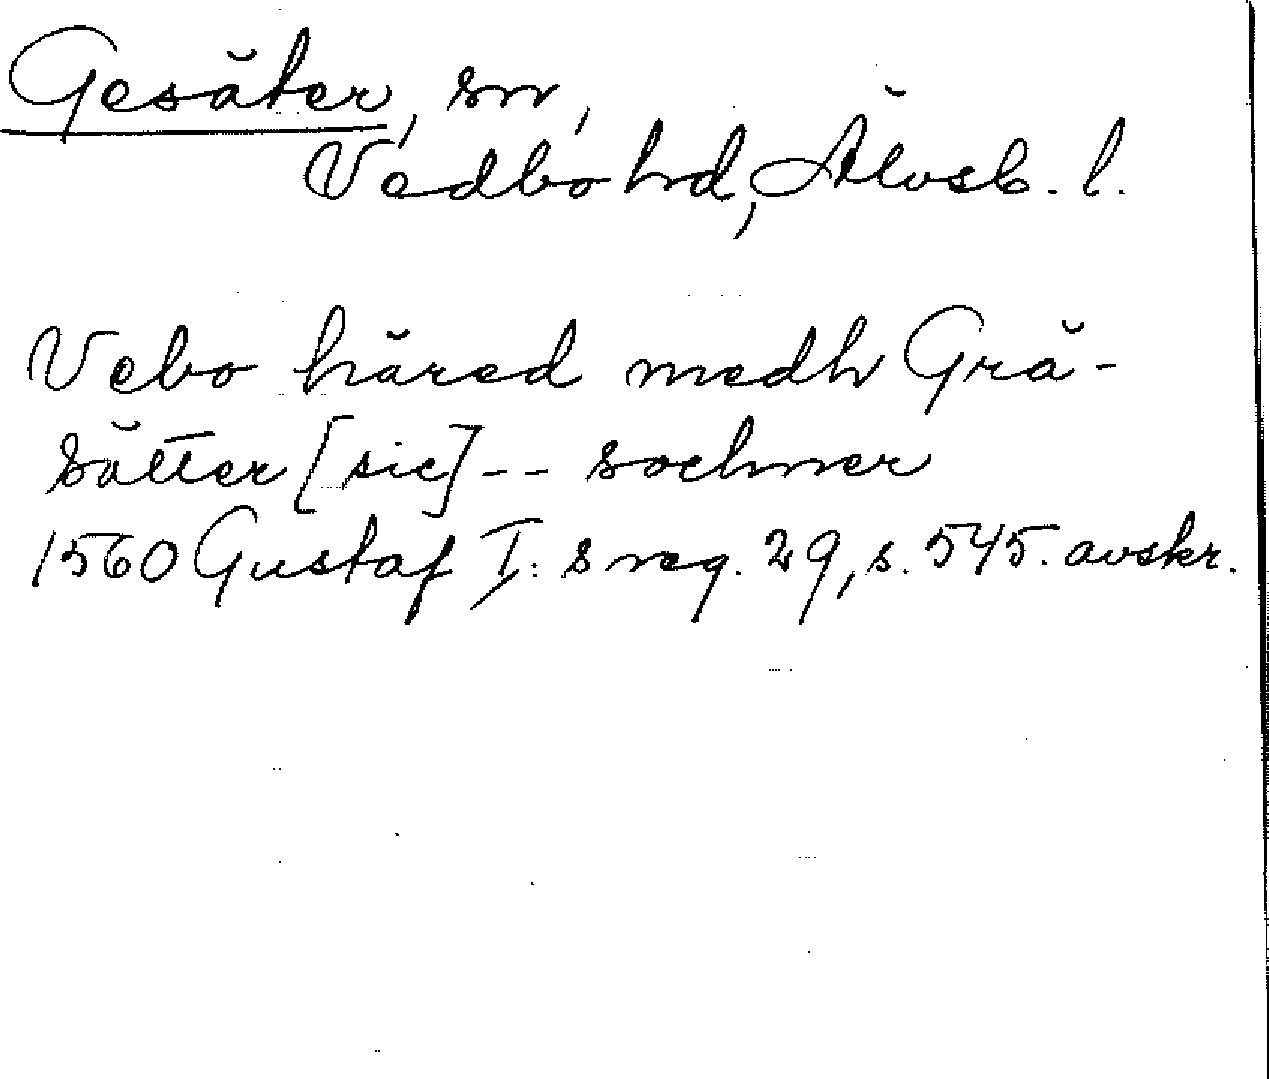 Gesäter, sn,
Vedbo hd, Älvsb. l.
Vebo häred medh Grä-
sätter [sic] -- sochner
1560 Gustaf I:s reg. 29, s. 545. avskr.